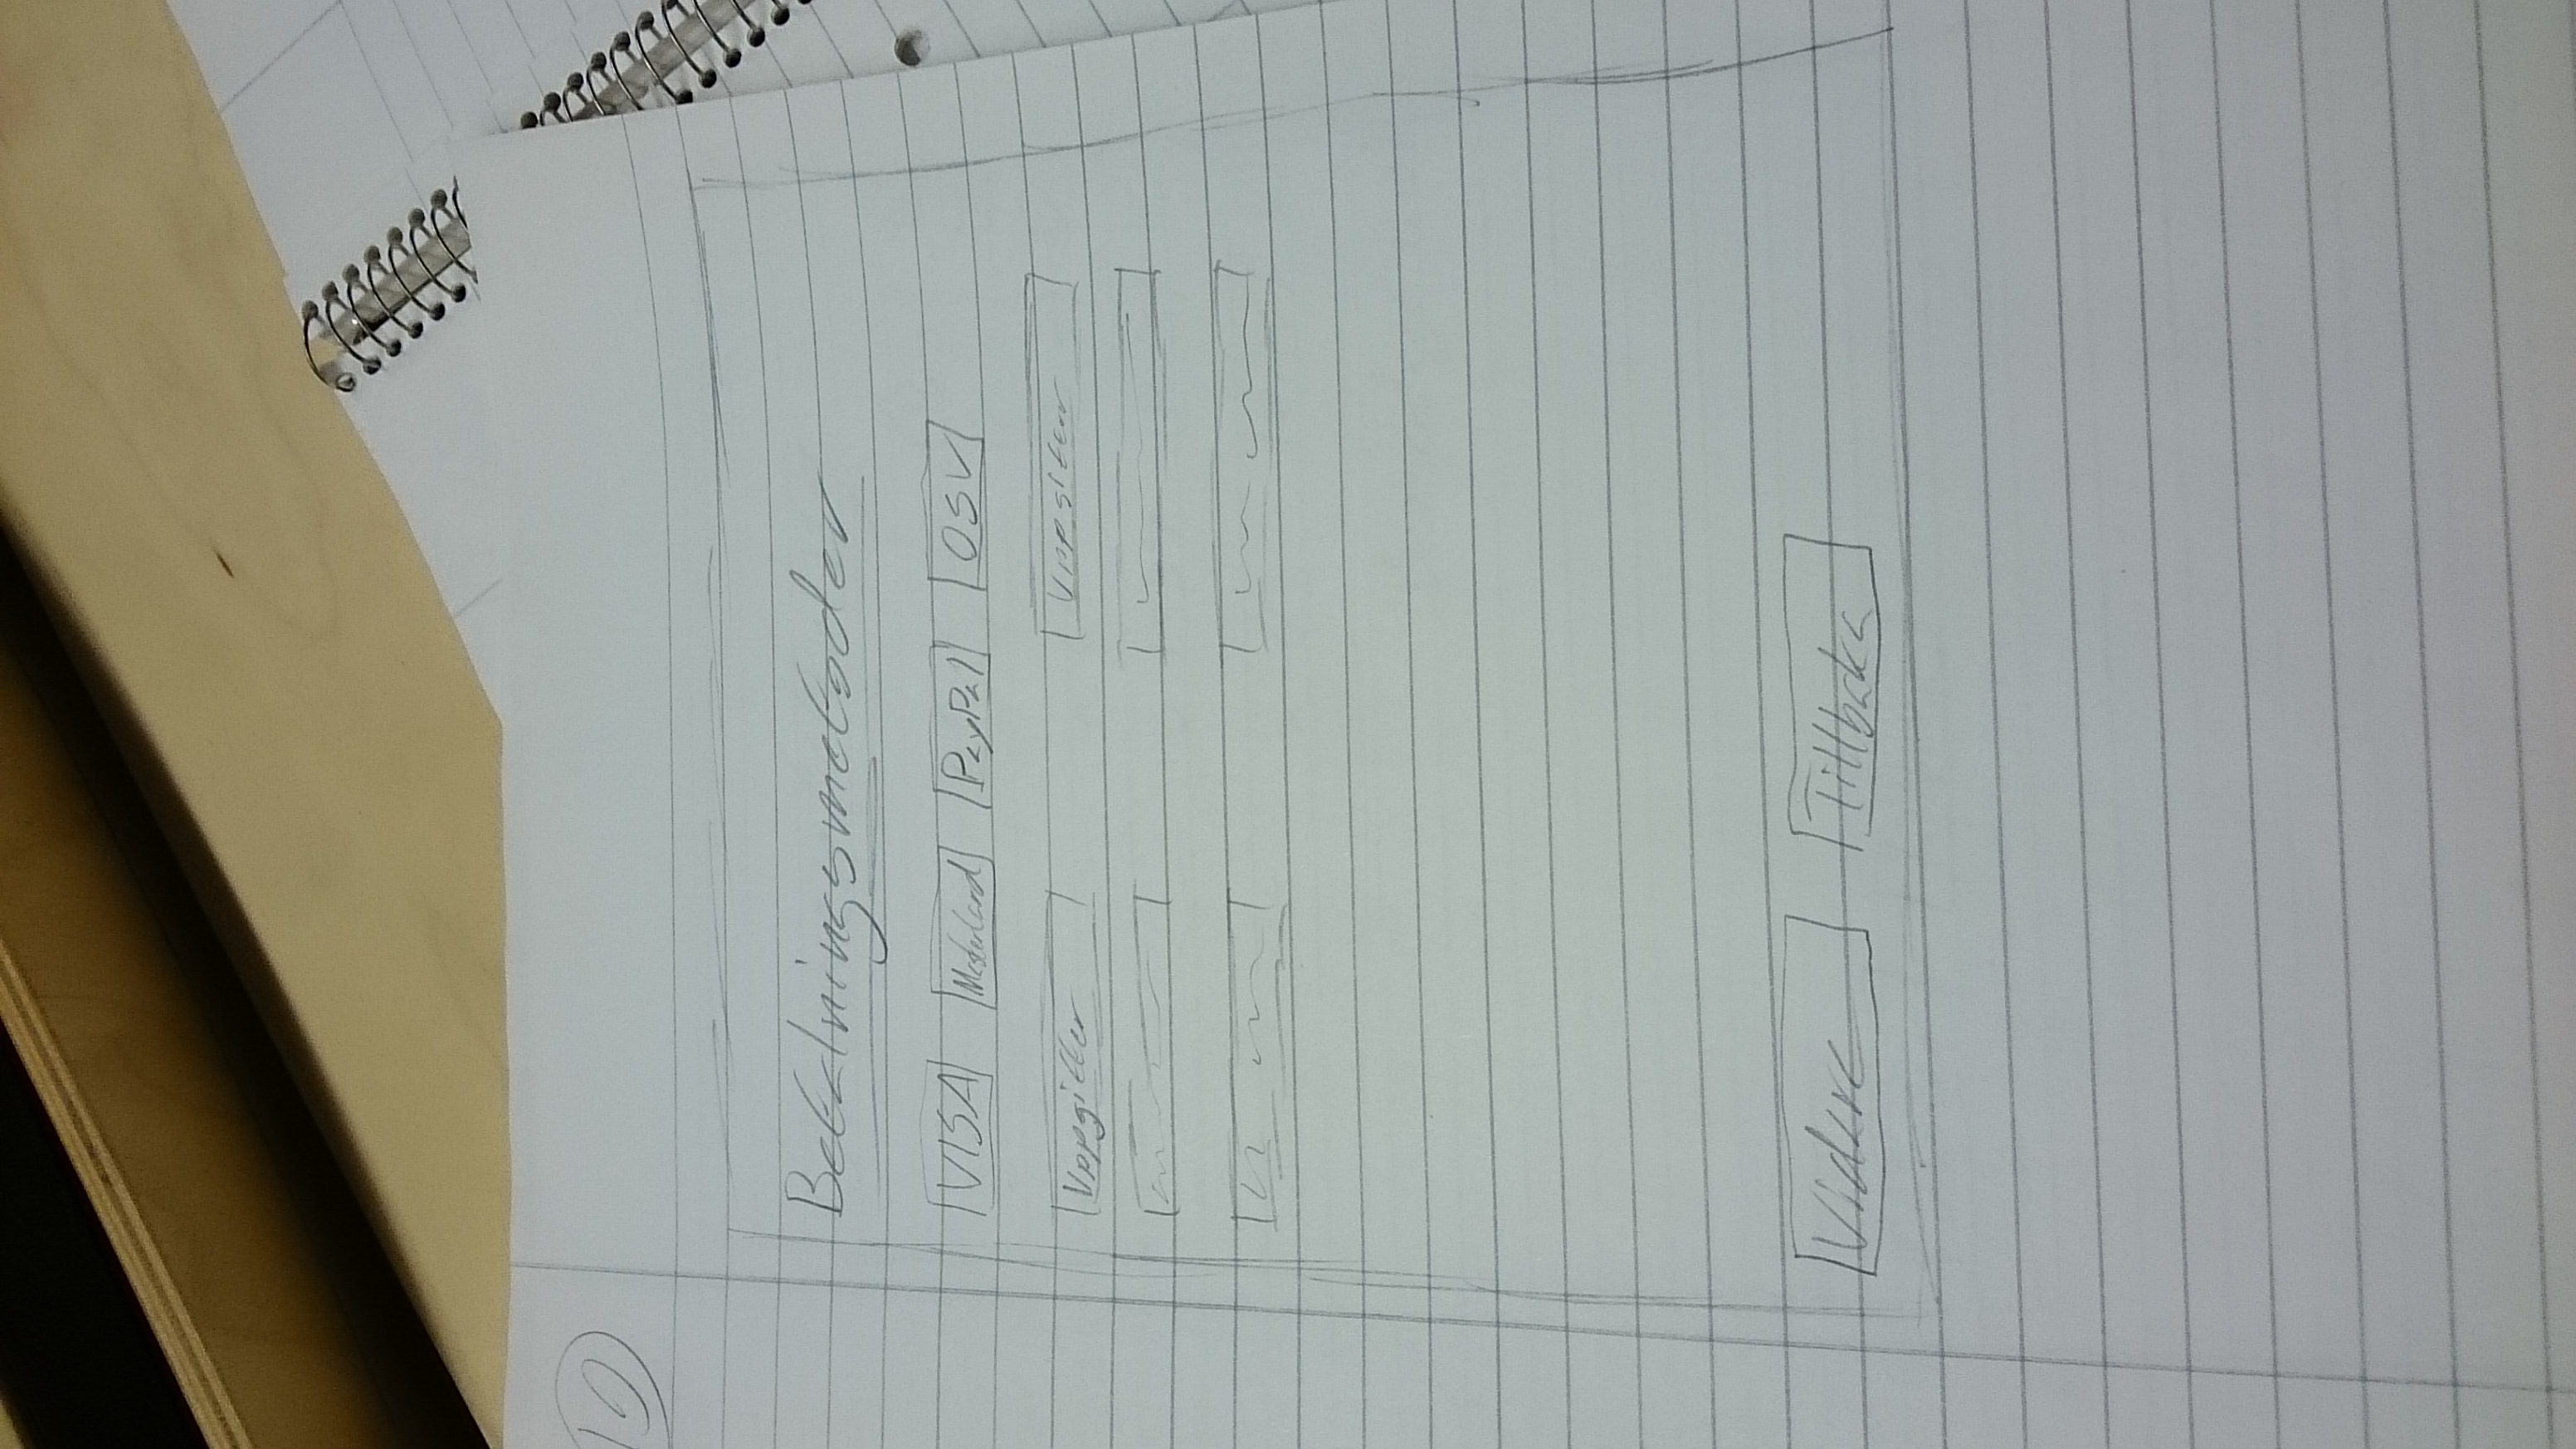 Betalningsmetoder
VISA MasterCard PayPal OSV
Uppgifter Uppgifter
Vidare Tillbaka